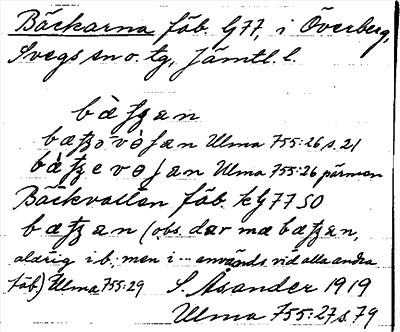 Bäckarna fäb. G77, i Överberg,
Svegs sn o. tg, Jämtl. l.
Ulma 755:26 s. 21
Ulma 755:26 pärmen
Bäckvallen fäb. kG7750
(obs. där mæ
aldrig i b. men i ... används vid alla andra
fäb.) Ulma 755:29 S. Åsander 1919
Ulma 755:27 s. 79